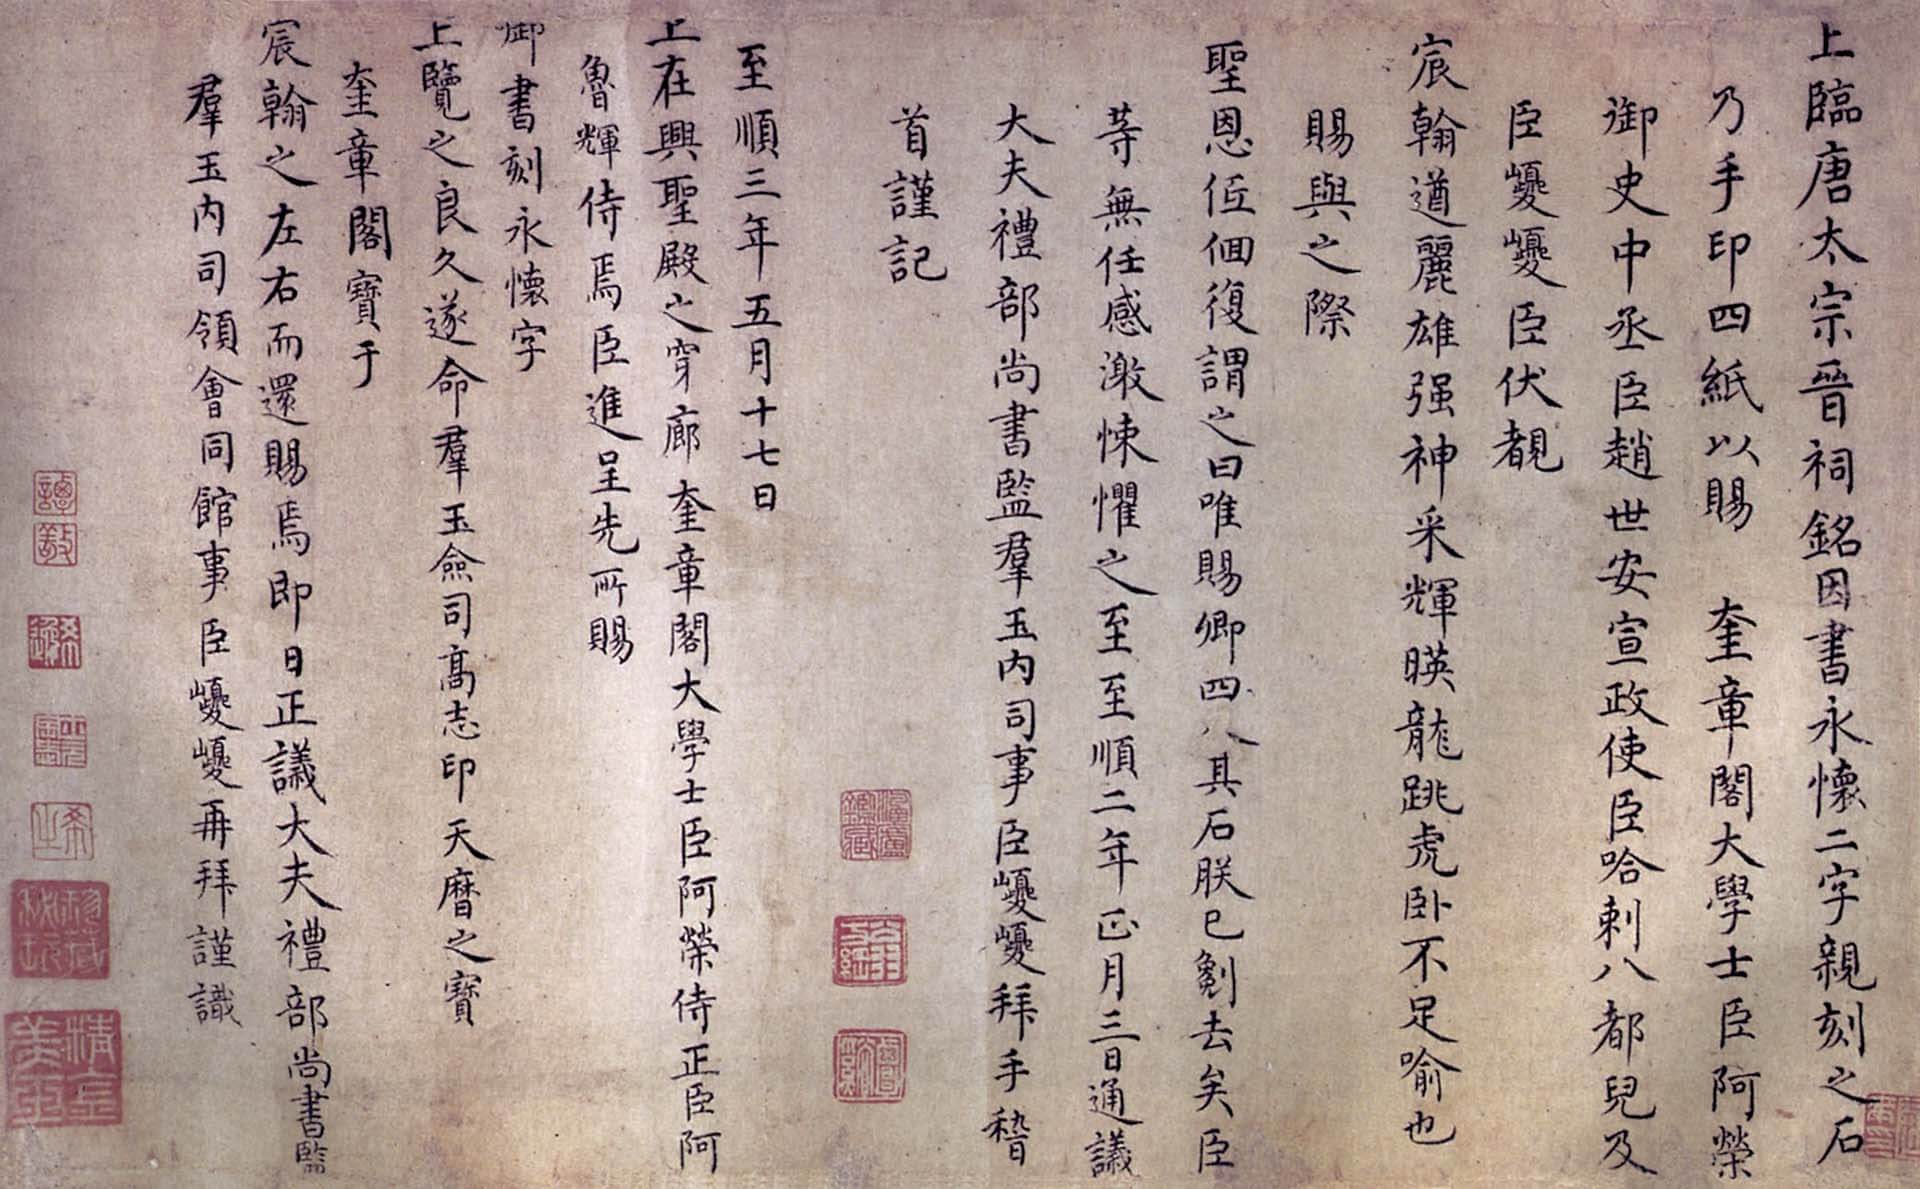 上臨唐太宗晉祠銘因書永懷二字親刻之石
乃手印四紙以賜　奎章閣大學士臣阿榮
御史中丞臣趙世安宣政使臣哈剌八都兒及
臣巙巙臣伏覩
宸翰遒麗雄强神采輝暎龍跳虎卧不足喻也
賜與之際
聖恩俯佪復謂之曰唯賜卿四人其石朕已劖去矣臣
等無任感激悚懼之至至順二年正月三日通議
大夫禮部尚書監羣玉内司事臣巙巙拜手稽
首謹記
至順三年五月十七日
上在興聖殿之穿廊奎章閣大學士臣阿榮侍正臣阿
魯輝侍焉臣進呈先所賜
御書刻永懷字
上覽之良久遂命羣玉僉司高志印天曆之寶
奎章閣寶于
宸翰之左右而還賜焉即日正議大夫禮部尚書監
羣玉内司領會同館事臣巙巙再拜謹識